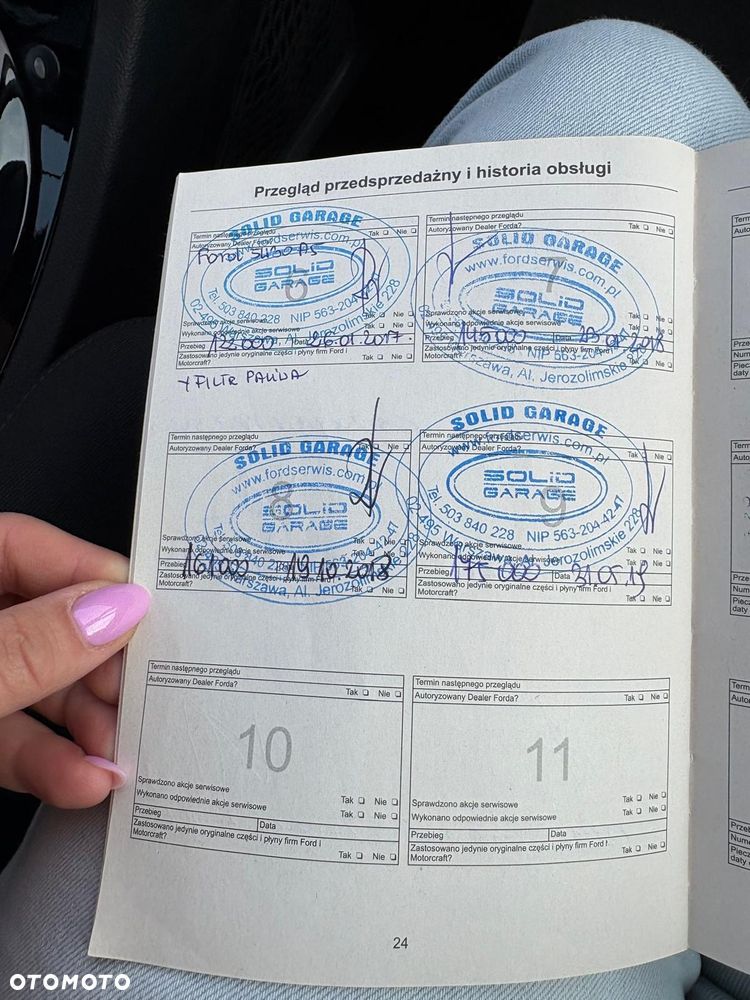 Przegląd przedsprzedażny i historia obsługi
Termin następnego przeglądu
Autoryzowany Dealer Forda?
Tak Nie
Ford 5W30 A5
SOLID GARAGE
www.fordserwis.com.pl
SOLID
GARAGE
6
Tel. 503 840 228 NIP 563-204-42-41
02-495 Warszawa, Al. Jerozolimskie 228
Sprawdzono akcje serwisowe
Tak Nie
Wykonano odpowiednie akcje serwisowe
Tak Nie
Przebieg 122.000 Data 26.01.2017.
Zastosowano jedynie oryginalne części i płyny firm Ford i
Motorcraft?
Tak Nie
+ FILTR PALIWA
Termin następnego przeglądu
Autoryzowany Dealer Forda?
Tak Nie
SOLID GARAGE
www.fordserwis.com.pl
7
SOLID
GARAGE
NIP 563-204-42-41
Warszawa, Al. Jerozolimskie 228
Sprawdzono akcje serwisowe
Tak Nie
Wykonano odpowiednie akcje serwisowe
Tak Nie
Przebieg 145 000 2018
Zastosowano jedynie oryginalne części i płyny firm Ford i
Motorcraft?
Tak Nie
Termin następnego przeglądu
Autoryzowany Dealer Forda?
Tak Nie
SOLID GARAGE
www.fordserwis.com.pl
8
SOLID
GARAGE
Warszawa, Al. Jerozolimskie 228
Sprawdzono akcje serwisowe
Tak Nie
Wykonano odpowiednie akcje serwisowe
Tak Nie
Przebieg 161000 19.10.2018
Zastosowano jedynie oryginalne części i płyny firm Ford i
Motorcraft?
Tak Nie
Termin następnego przeglądu
Autoryzowany Dealer Forda?
Tak Nie
SOLID GARAGE
www.fordserwis.com.pl
SOLID
GARAGE
9
Tel. 503 840 228 NIP 563-204-42-41
02-495 Warszawa, Al. Jerozolimskie 228
Sprawdzono akcje serwisowe
Tak Nie
Wykonano odpowiednie akcje serwisowe
Tak Nie
Przebieg 175 000 Data 31.05.19
Zastosowano jedynie oryginalne części i płyny firm Ford i
Motorcraft?
Tak Nie
Termin następnego przeglądu
Autoryzowany Dealer Forda?
Tak Nie
10
Sprawdzono akcje serwisowe
Tak Nie
Wykonano odpowiednie akcje serwisowe
Tak Nie
Przebieg Data
Zastosowano jedynie oryginalne części i płyny firm Ford i
Motorcraft?
Tak Nie
Termin następnego przeglądu
Autoryzowany Dealer Forda?
Tak Nie
11
Sprawdzono akcje serwisowe
Tak Nie
Wykonano odpowiednie akcje serwisowe
Tak Nie
Przebieg Data
Zastosowano jedynie oryginalne części i płyny firm Ford i
Motorcraft?
Tak Nie
24
OTOMOTO